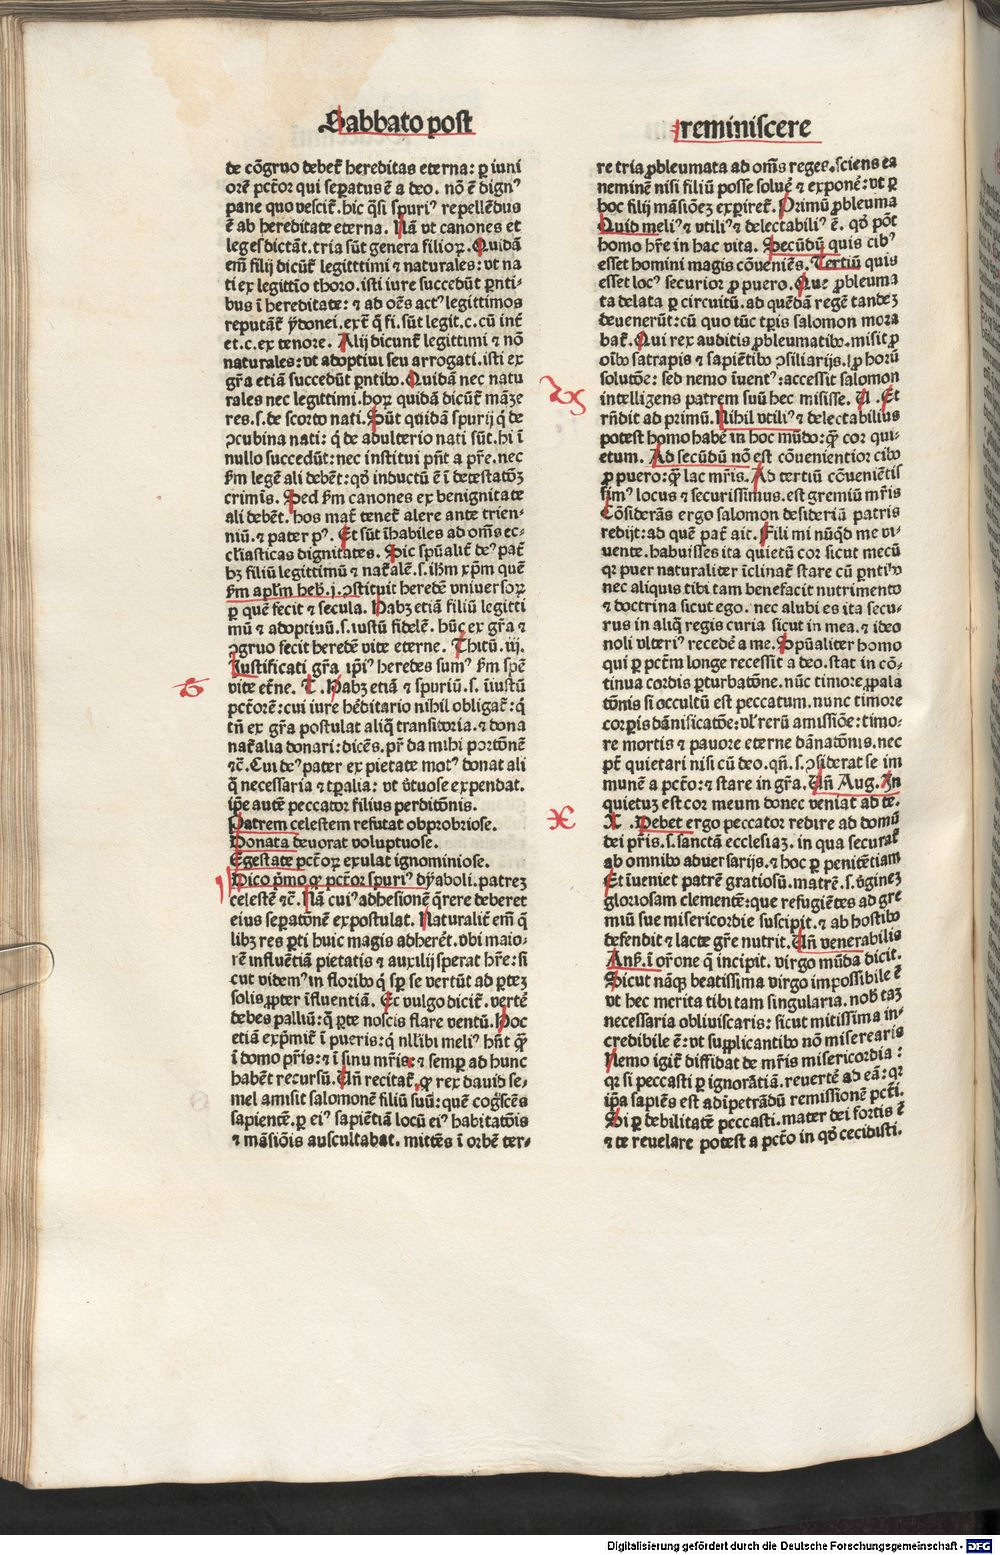 Sabbato post
reminiscere
de cõgruo debet̃ hereditas eterna: ꝑ iuni
orẽ pctõr qui seꝑatus ẽ a deo. nõ ẽ dignꝰ
pane quo vescit̃. hic q̃si spuriꝰ repellẽdus
ẽ ab hereditate eterna. Nã vt canones et
leges dictãt. tria sũt genera filioꝝ. Quidã
em̃ filij dicũt̃ legitttimi ⁊ naturales: vt na
ti ex legittĩo thoro. isti iure succedũt pñti-
bus ĩ hereditate: ⁊ ad oẽs actꝰ legittimos
reputãt̃ ydonei. ext̃ q̃ fi. sũt legit. c. cũ int̃
et. c. ex tenore. Alij dicunt̃ legittimi ⁊ nõ
naturales: vt adoptiui seu arrogati. isti ex
gr̃a etiã succedũt pñtibo. Quidã nec natu
rales nec legittimi. hoꝝ quidã dicũt̃ mãze
res. s. de scorto nati. Sũt quidã spurij q̃ de
ↄcubina nati: q̃ de adulterio nati sũt. hi ĩ
nullo succedũt: nec institui pñt a pr̃e. nec
ẜm legẽ ali debẽt: qđ inductũ ẽ ĩ detestatõꝫ
crimĩs. Sed ẜm canones ex benignitate
ali debẽt. hos mat̃ tenet̃ alere ante trien-
niũ. ⁊ pater pꝰ. Et sũt ĩhabiles ad om̃s ec-
cl̃iasticas dignitates. Sic spũalit̃ deꝰ pat̃
hꝫ filiũ legittimũ ⁊ nat̃alẽ. s. ihm̃ xp̃m quẽ
ẜm apl̃m heb̃. j. ↄstituit heredẽ vniuersoꝝ
ꝑ quẽ fecit ⁊ secula. Habꝫ etiã filiũ legitti
mũ ⁊ adoptiuũ. s. iustũ fidelẽ. hũc ex gr̃a ⁊
ↄgruo fecit heredẽ vite eterne. Thitũ. iij.
Iustificati gr̃a ip̃iꝰ heredes sumꝰ ẜm spẽ
vite et̃ne. T. Habꝫ etiã ⁊ spuriũ. s. ĩiustũ
pctõrem: cui iure hẽditario nihil obligat̃: q̃
tñ ex gr̃a postulat aliq̃ transitoria. ⁊ dona
nat̃alia donari: dicẽs. pr̃ da mihi portõnẽ
⁊c̃. Cui deꝰ pater ex pietate motꝰ donat ali
q̃ necessaria ⁊ tꝑalia: vt v̾tuose expendat.
ip̃e autẽ peccator filius perditõnis.
Patrem celestem refutat obprobriose.
Donata deuorat voluptuose.
Egestate pctõꝝ exulat ignominiose.
Dico p̃mo ꝙ pctõr spuriꝰ dyaboli. patreꝫ
celestẽ ⁊c̃. Nã cuiꝰ adhesionẽ q̃rere deberet
eius seꝑatõnẽ expostulat. Naturalit̃ em̃ q̃
libꝫ res ꝑti huic magis adheret̃. vbi maio-
rẽ influẽtiã pietatis ⁊ auxilij sperat hr̃e: si
cut videmꝰ in floribo q̃ sꝑ se vertũt ad ꝑteꝫ
solis ꝓpter ĩfluentiã. Ec vulgo dicit̃. vertẽ
debes palliũ: q̃ ꝑte noscis flare ventũ. Hoc
etiã exp̃mit̃ ĩ pueris: q̃ nllibi meliꝰ hñt qᷓ
ĩ domo pr̃is: ⁊ ĩ sinu mr̃is: ⁊ semꝑ ad hunc
habẽt recursũ. Vñ recitat̃, ꝙ rex dauid se-
mel amisit salomonẽ filiũ suũ: quẽ cog̃scẽs
sapientẽ. ꝑ eiꝰ sapiẽtiã locũ eiꝰ habitatõis
⁊ mãsiõis auscultabat. mittẽs ĩ orbẽ ter-
re tria ꝓbleumata ad om̃s reges. sciens ea
neminẽ nisi filiũ posse soluẽ ⁊ exponẽ: vt ꝑ
hoc filij mãsiõeꝫ exꝑiret̃. Primũ ꝓbleuma
Quid meliꝰ ⁊ vtiliꝰ ⁊ delectabiliꝰ ẽ. qđ põt
homo hr̃e in hac vita. Secũdũ quis cibꝰ
esset homini magis cõueniẽs. Tertiũ quis
esset locꝰ securior ꝓ puero. Que ꝓbleuma
ta delata ꝑ circuitũ. ad quẽdã regẽ tandeꝫ
deuenerũt: cũ quo tũc tꝑis salomon mora
bat̃. Qui rex auditis ꝓbleumatibo. misit ꝓ
oĩbo satrapis ⁊ sapiẽtibo ↄsiliarijs. ꝓ horũ
solutõe: sed nemo ĩuentꝰ: accessit salomon
intelligens patrem suũ hec misisse. V. Et
rñdit ad primũ. Nihil vtiliꝰ ⁊ delectabilius
potest homo habẽ in hoc mũdo: qᷓ cor qui-
etum. Ad secũdũ nõ est cõuenientior cibo
ꝓ puero: qᷓ lac mr̃is. Ad tertiũ cõueniẽtis
sim̃ꝰ locus ⁊ securissimus. est gremiũ mr̃is
Cõsiderãs ergo salomon desideriũ patris
redijt: ad quẽ pat̃ ait. Fili mi nũq̃d me vi-
uente. habuisses ita quietũ cor sicut mecũ
qr puer naturaliter ĩclinat̃ stare cũ pñtibo
nec aliquis tibi tam benefacit nutrimento
⁊ doctrina sicut ego. nec alubi es ita secu-
rus in aliq̃ regis curia sicut in mea. ⁊ ideo
noli vlteriꝰ recedẽ a me. Spũaliter homo
qui ꝑ pctm̃ longe recessit a deo. stat in cõ-
tinua cordis ꝑturbatõne. nũc timore ꝓpala
tõnis si occultũ est peccatum. nunc timore
corꝑis dãnificatõe: vl̃ rerũ amissiõe: timo-
re mortis ⁊ pauore eterne dãnatõnis. nec
pt̃ quietari nisi cũ deo. qñ. s. ↄsiderat se im
munẽ a pctõ: ⁊ stare in gr̃a. Vñ Aug. In
quietuꝫ est cor meum donec veniat ad te.
X. Debet ergo peccator redire ad domũ
dei pr̃is. s. sanctã ecclesiaꝫ. in qua securat̃
ab omnibo aduersarijs. ⁊ hoc ꝑ penitẽtiam
Et ĩueniet patrẽ gratiosũ. matrẽ. s. v̾ginẽꝫ
gloriosam clementẽ: que refugiẽtes ad gre
miũ sue misericordie suscipit. ⁊ ab hostibo
defendit ⁊ lacte gr̃e nutrit. Vñ venerabilis
Anß. ĩ or̃one q̃ incipit. virgo mũda dicit.
Sicut nãqꝫ beatissima virgo impossibile ẽ
vt hec merita tibi tam singularia. nob̃ taꝫ
necessaria obliuiscaris: sicut mitissima in-
credibile ẽ: vt suꝓplicantibo nõ miserearis
Nemo igit̃ diffidat de mr̃is misericordia:
qr si peccasti ꝑ ignorãtiã. reuertẽ ad eã: qr
ip̃a sapiẽs est ad ĩpetrãdũ remissionẽ pctĩ.
Si ꝑ debilitatẽ peccasti. mater dei fortis ẽ
⁊ te reuelare potest a pctõ in qđ cecidisti.
Digitalisierung gefördert durch die Deutsche Forschungsgemeinschaft - DFG